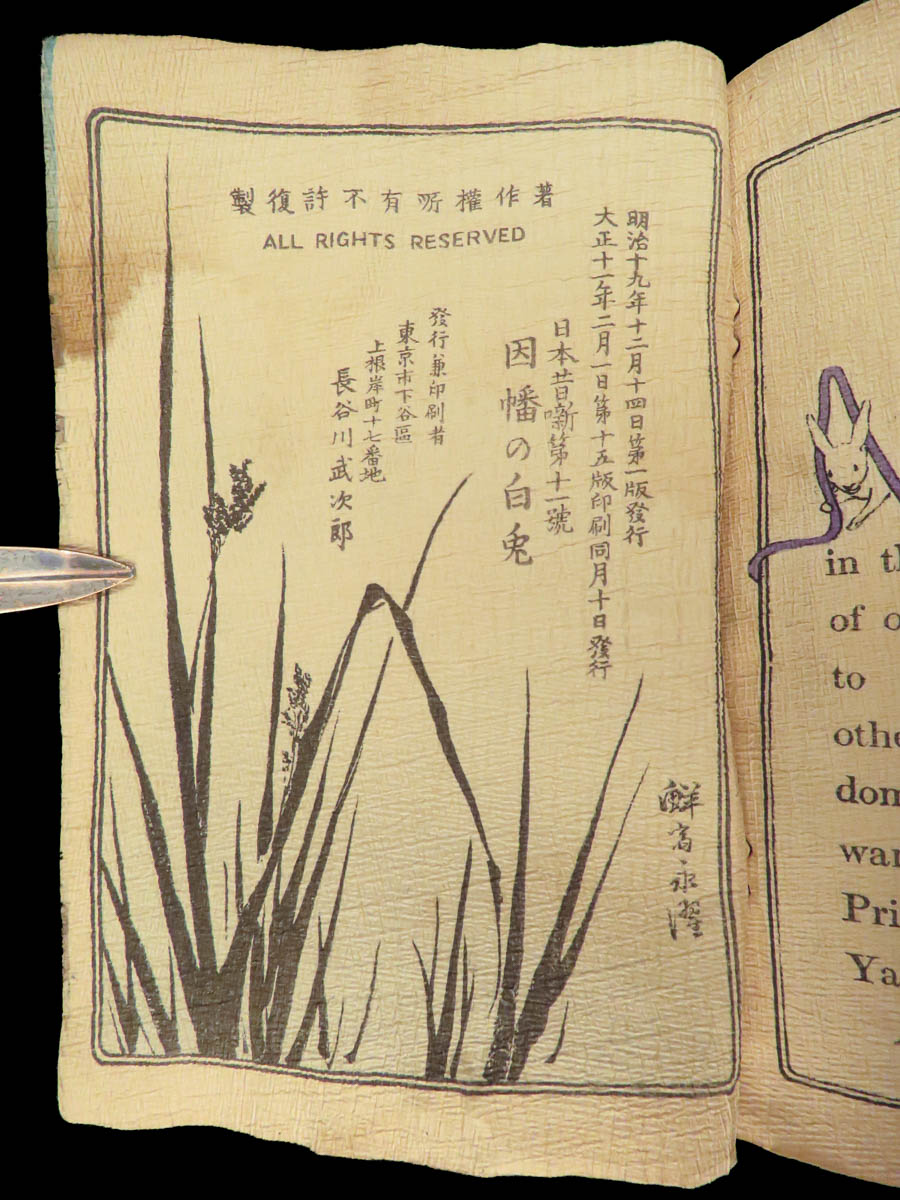 著作權所有不許復製
ALL RIGHTS RESERVED
明治十九年十二月十四日第一版發行
大正十一年二月一日第十五版印刷同月十日發行
日本昔噺第十一號
因幡の白兎
發行兼印刷者
東京市下谷區
上根岸町十七番地
長谷川武次郎
鮮斎永濯
in th
of o
to
othe
dom
war
Pri
Ya